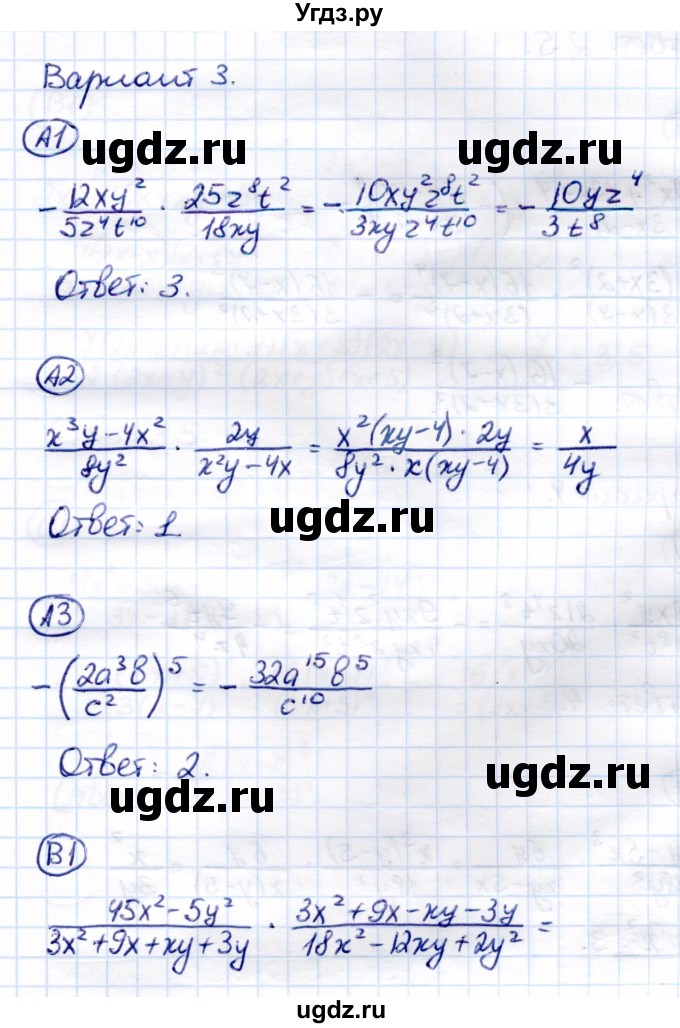 Угдз.ру
Вариант 3.
А1
ugdz.ru ugdz.ru
-12xy²/5z⁴t¹⁰ · 25z⁸t²/18xy = -10xy²z⁸t²/3xyz⁴t¹⁰ = -10yz⁴/3t⁸
Ответ: 3.
ugdz.ru
А2
x³y-4x²/8y² · 2y/x²y-4x = x²(xy-4)·2y/8y²·x(xy-4) = x/4y
Ответ: 1
ugdz.ru
А3
ugdz.ru
-(2a³b/c²)⁵ = -32a¹⁵b⁵/c¹⁰
Ответ: 2.
ugdz.ru
ugdz.ru
В1
45x²-5y²/3x²+9x+xy+3y · 3x²+9x-xy-3y/18x²-12xy+2y² =